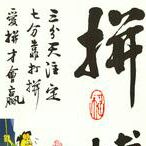 拼
三分天注定
七分靠打拼
愛拼才會贏